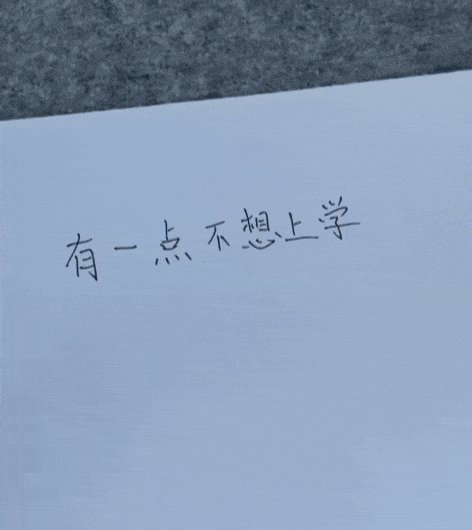 有一点不想上学